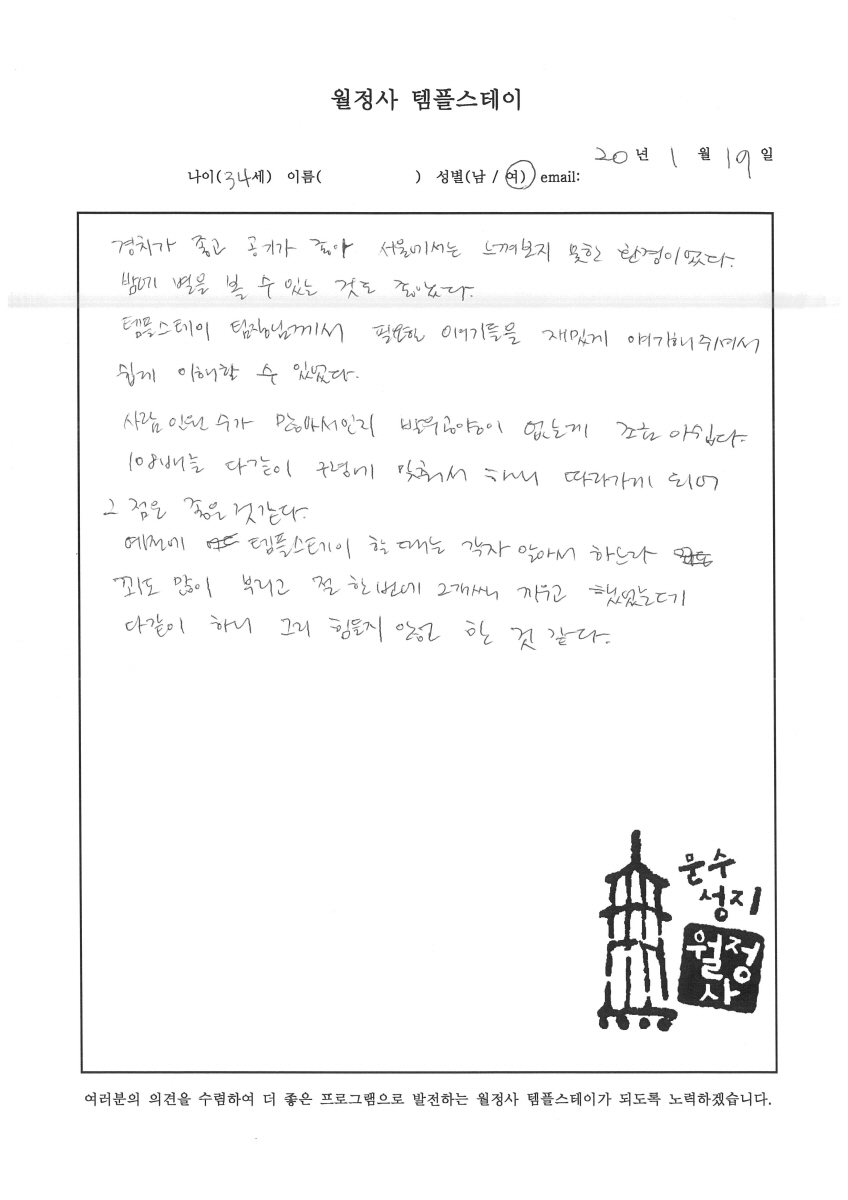 월정사 템플스테이
20년 1월 19일
나이(34세) 이름( ) 성별(남 / 여) email:
경치가 좋고 공기가 좋아 서울에서는 느껴보지 못한 환경이었다.
밤에 별을 볼 수 있는 것도 좋았다.
템플스테이 팀장님께서 필요한 이야기들을 재밌게 얘기해주셔서
쉽게 이해할 수 있었다.
사람 인원 수가 많아서인지 발우공양이 없는게 조금 아쉽다.
108배는 다같이 구령에 맞춰서 하니 따라가게 되어
그 점은 좋은 것같다.
예전에 템플스테이 할 때는 각자 알아서 하느라
꾀도 많이 부리고 절 한번에 2개씩 끼우고 했었는데
다같이 하니 그리 힘들지 않고 한 것 같다.
문수
성지
월정
사
여러분의 의견을 수렴하여 더 좋은 프로그램으로 발전하는 월정사 템플스테이가 되도록 노력하겠습니다.